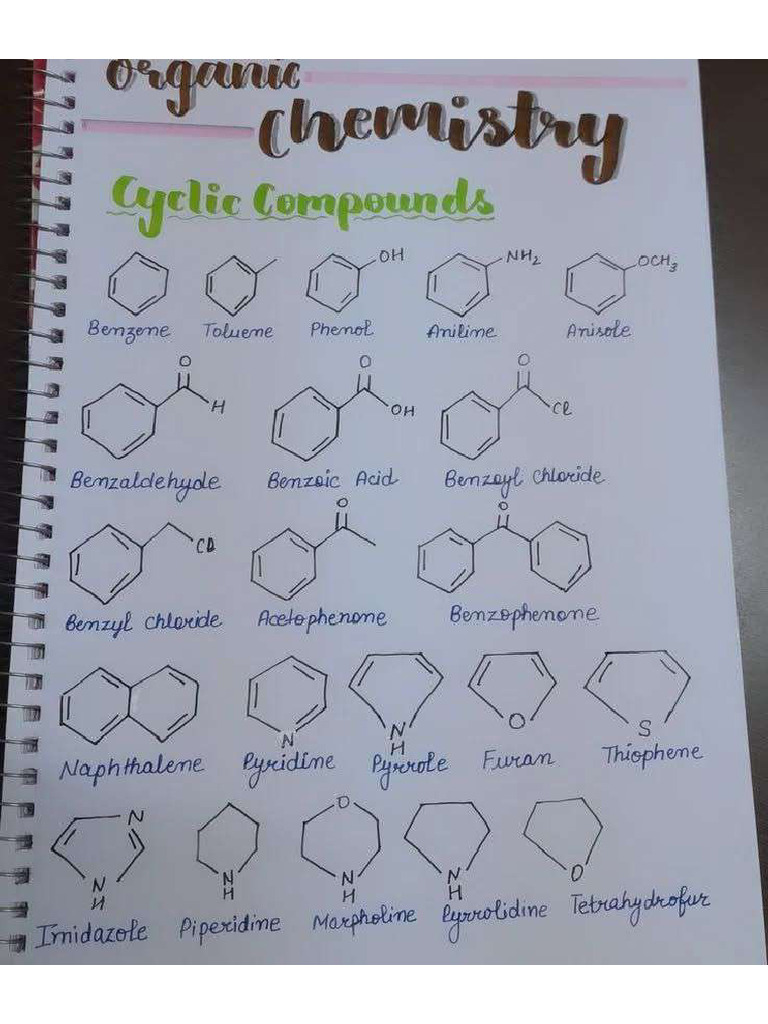 organic
chemistry
Cyclic Compounds
OH NH2 OCH3
Benzene Toluene Phenol Aniline Anisole
O O O
H OH Cl
Benzaldehyde Benzoic Acid Benzoyl Chloride
O O
Cl
Benzyl Chloride Acetophenone Benzophenone
N N H O S
Naphthalene Pyridine Pyrrole Furan Thiophene
N O
N H N H N H N H O
Imidazole Piperidine Morpholine Pyrrolidine Tetrahydrofur